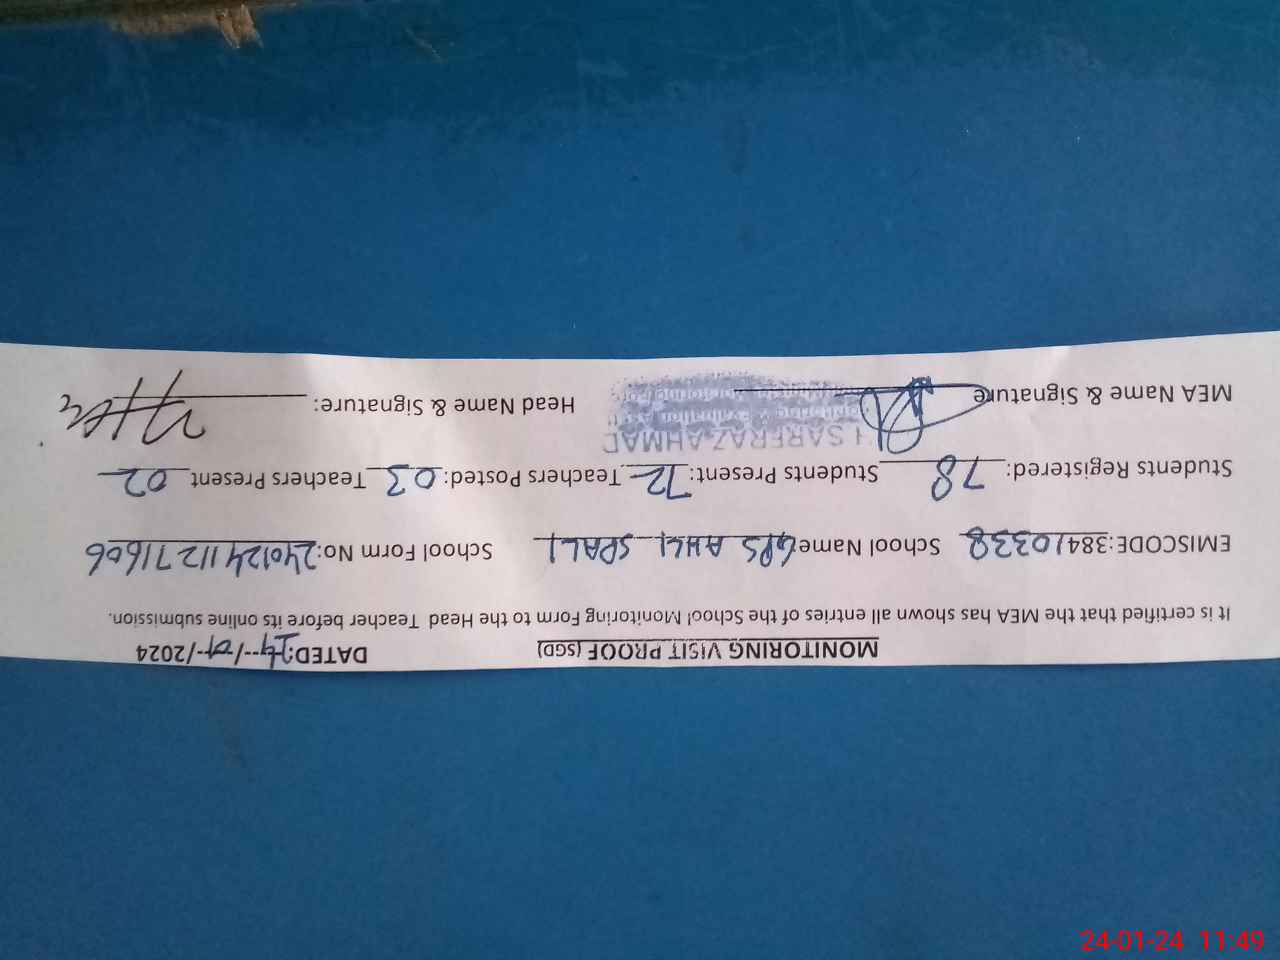 MONITORING VISIT PROOF (SGD) DATED:24/--01--/2024
It is certified that the MEA has shown all entries of the School Monitoring Form to the Head Teacher before its online submission.
EMISCODE:38410338 School Name GPS AHLI SPALI School Form No:240124111271606
Students Registered: 78 Students Present: 72 Teachers Posted: 03 Teachers Present 02
SARFRAZ AHMAD
MEA Name & Signature Head Name & Signature:
24-01-24 11:49